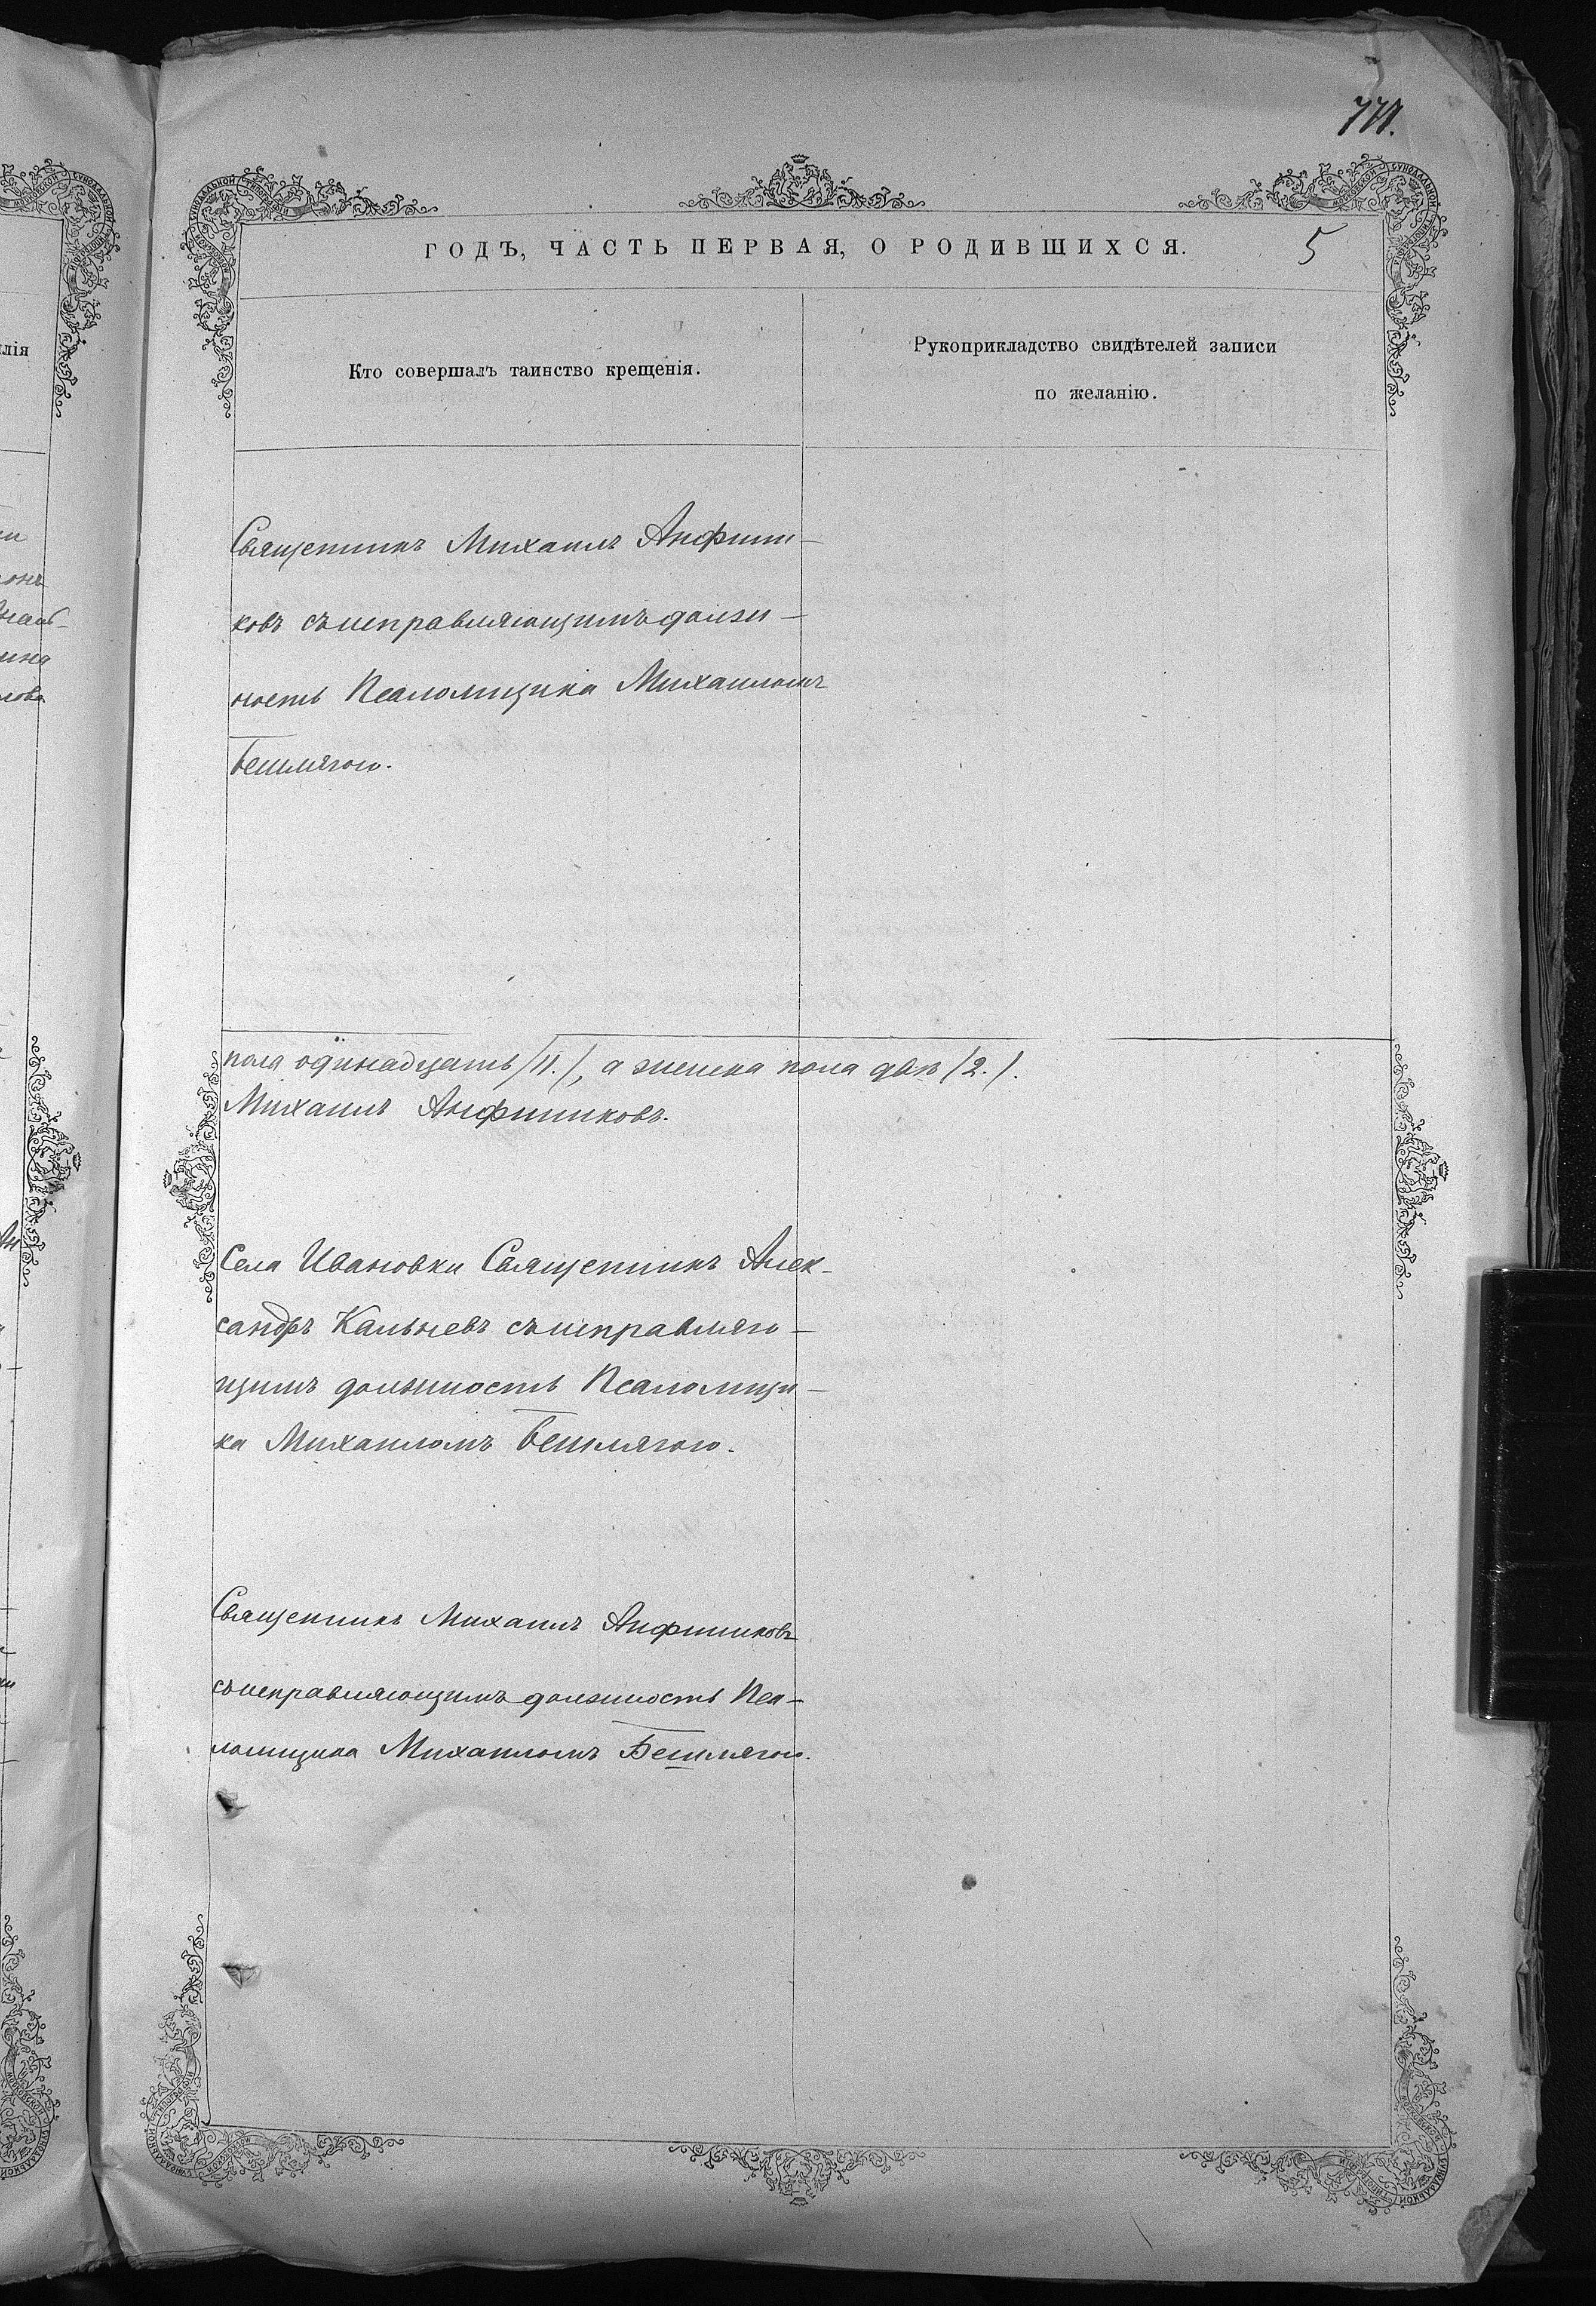 771.
ГОДЪ, ЧАСТЬ ПЕРВАЯ, О РОДИВШИХСЯ.
5
Кто совершалъ таинство крещенія.
Рукоприкладство свидѣтелей записи
по желанію.
Священникъ Михаилъ Анфини-
ковъ съ исправляющимъ долж-
ность Псаломщика Михаиломъ
Бешлягою.
пола одинадцать /11./, а женска пола двѣ /2./.
Михаилъ Анфиниковъ.
Села Ивановки Священникъ Алек-
сандръ Кальневъ съ исправляю-
щимъ должность Псаломщи-
ка Михаиломъ Бешлягою.
Священникъ Михаилъ Анфиниковъ
съ исправляющимъ должность Пса-
ломщика Михаиломъ Бешлягою.